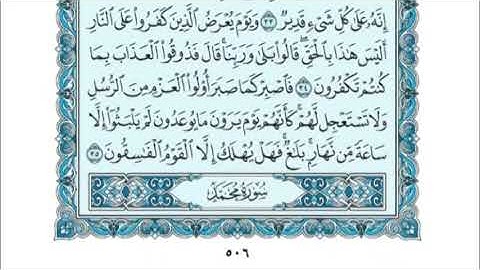 إِنَّهُۥ عَلَىٰ كُلِّ شَىْءٍ قَدِيرٌ ٣٣ وَيَوْمَ يُعْرَضُ ٱلَّذِينَ كَفَرُوا۟ عَلَى ٱلنَّارِ
أَلَيْسَ هَٰذَا بِٱلْحَقِّ ۖ قَالُوا۟ بَلَىٰ وَرَبِّنَا ۚ قَالَ فَذُوقُوا۟ ٱلْعَذَابَ بِمَا
كُنتُمْ تَكْفُرُونَ ٣٤ فَٱصْبِرْ كَمَا صَبَرَ أُو۟لُوا۟ ٱلْعَزْمِ مِنَ ٱلرُّسُلِ
وَلَا تَسْتَعْجِل لَّهُمْ ۚ كَأَنَّهُمْ يَوْمَ يَرَوْنَ مَا يُوعَدُونَ لَمْ يَلْبَثُوٓا۟ إِلَّا
سَاعَةً مِّن نَّهَارٍۭ ۚ بَلَٰغٌ ۚ فَهَلْ يُهْلَكُ إِلَّا ٱلْقَوْمُ ٱلْفَٰسِقُونَ ٣٥
سُورَةُ مُحَمَّدٍ
٥٠٦